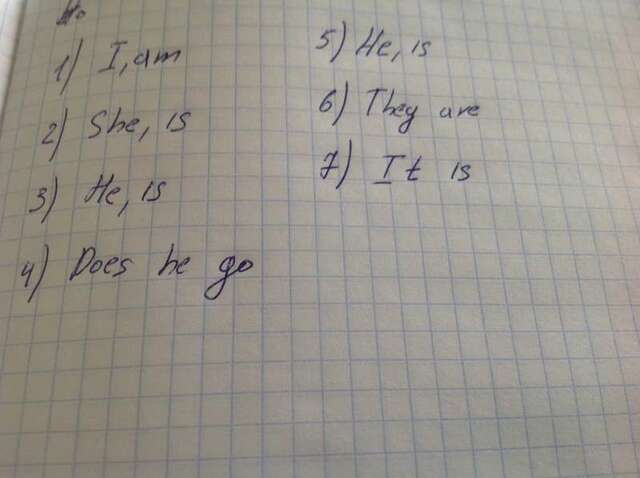 1) I, am
2) She, is
3) He, is
4) Does he go
5) He, is
6) They are
7) It is